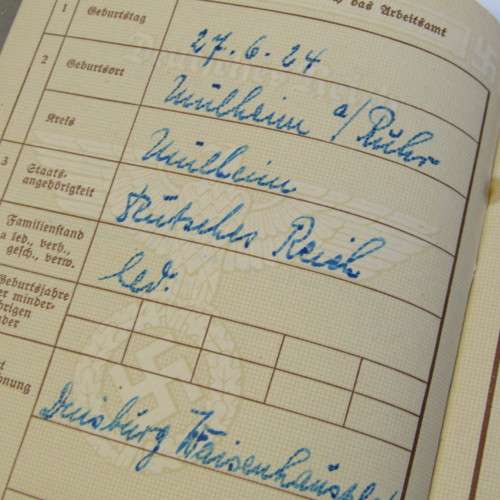 das Arbeitsamt
1 Geburtstag 27.6.24
2 Geburtsort Mülheim a/Ruhr
Kreis Mülheim
3 Staats-
angehörigkeit Deutsches Reich
Familienstand
led., verh.,
gesch., verw. led.
Geburtsjahre
minder-
Duisburg